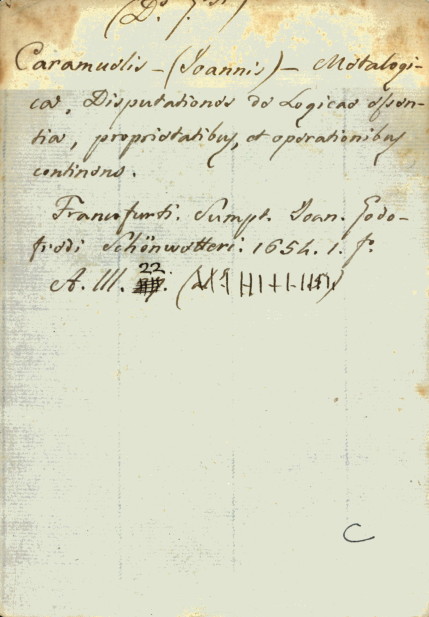 (D. 7.
Caramuelis - (Joannis) - Metalogi-
ca, Disputationes de Logicae essen-
tia, proprietatibus, et operationibus
continens.
Francofurti. Sumpt. Joan. Godo-
fredi Schönwetteri. 1654. 1. fº.
A. III. 22.
C